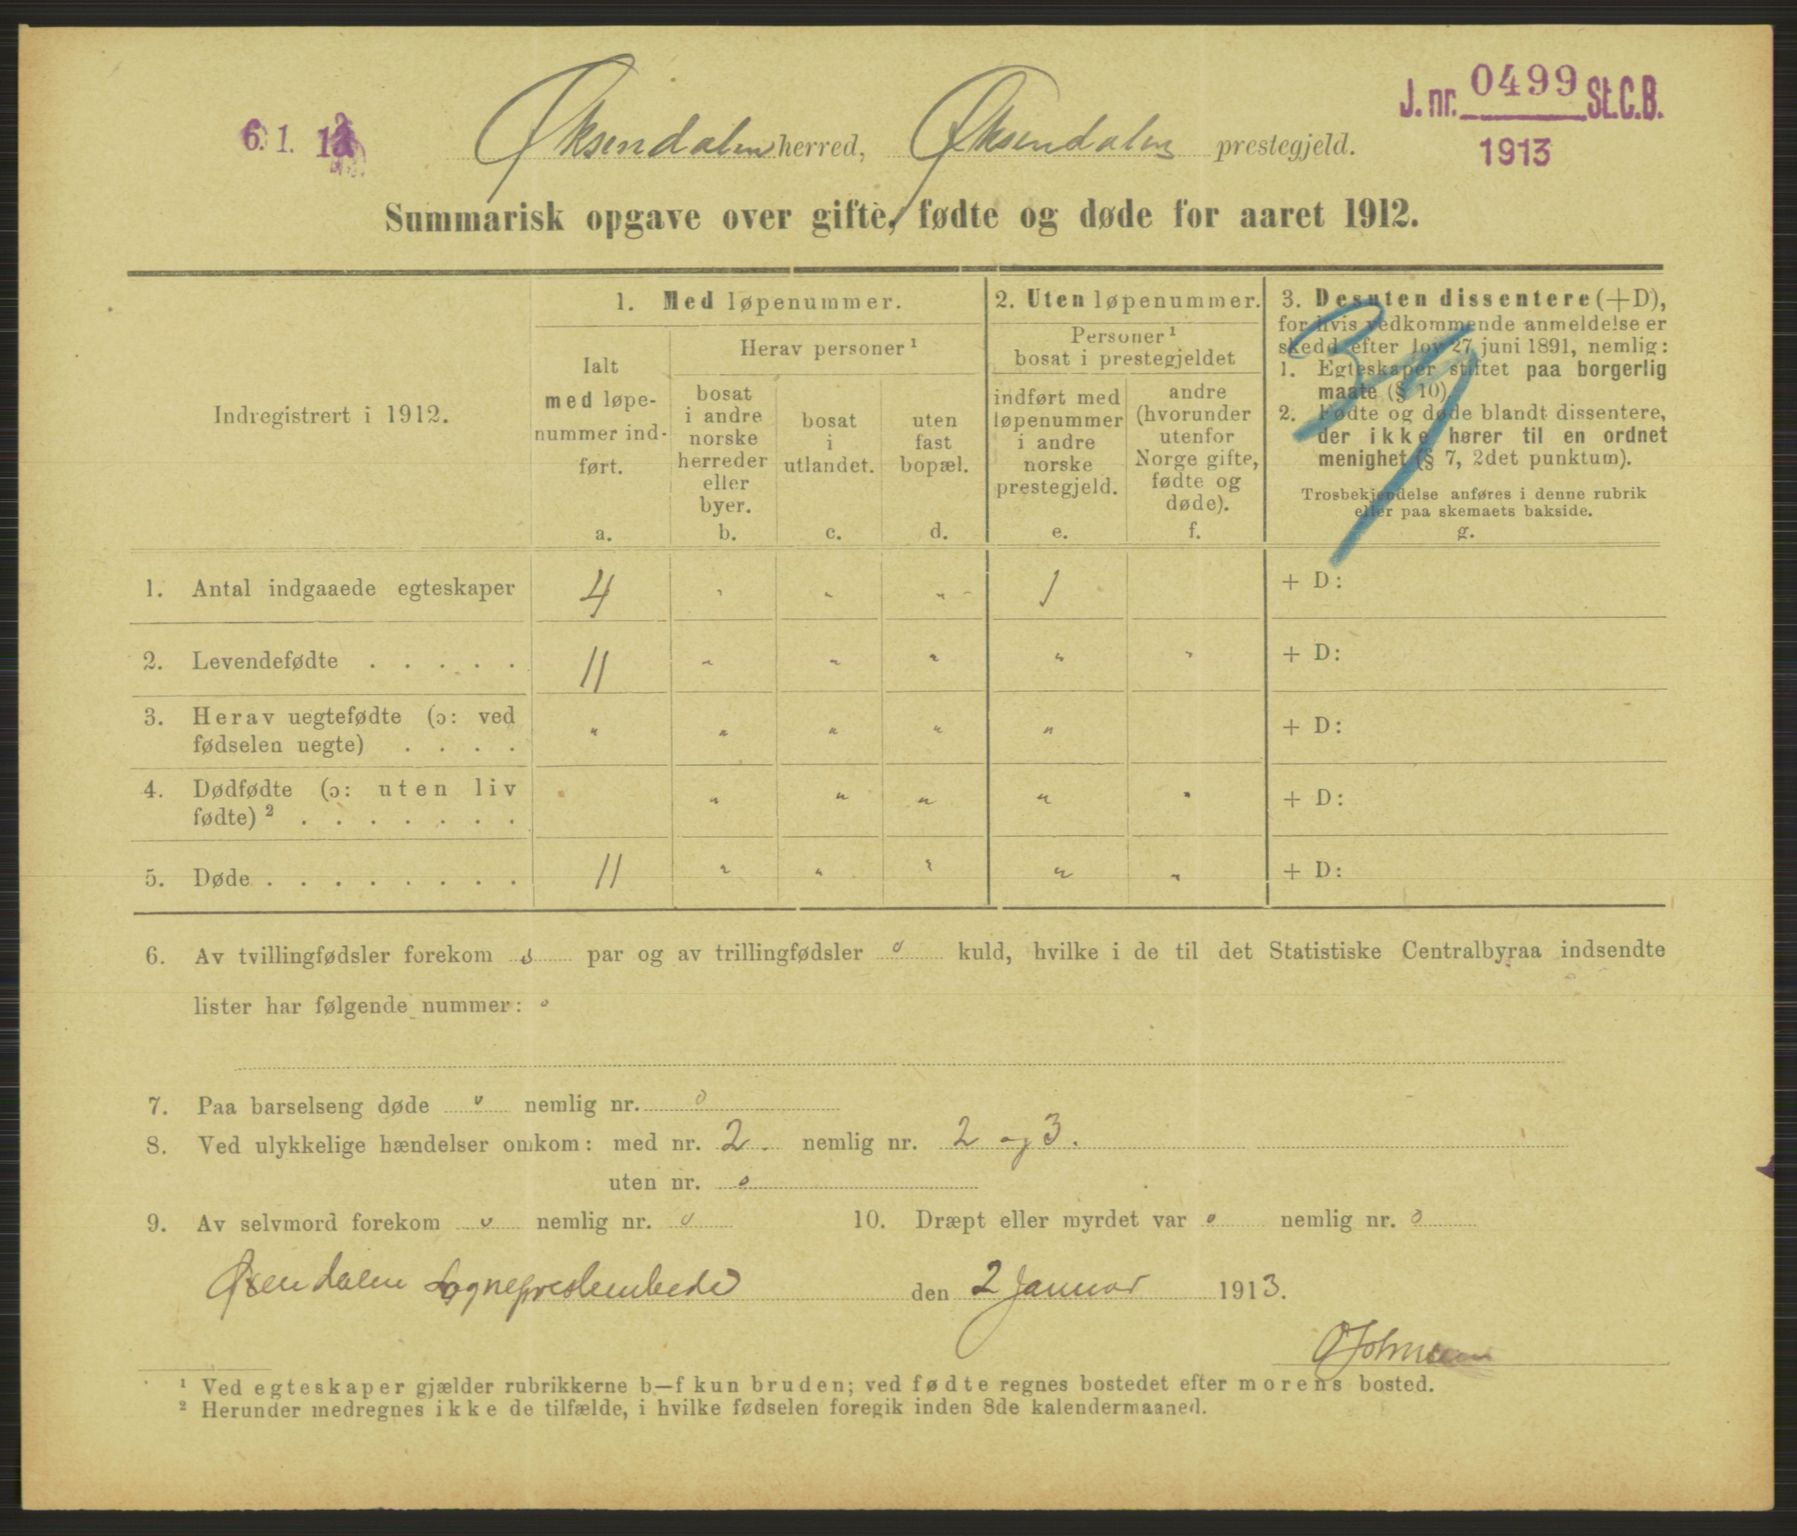 6. 1. 13
J. nr. 0499 St.C.B.
1913
Øksendalen herred, Øksendalens prestegjeld.
Summarisk opgave over gifte, fødte og døde for aaret 1912.
Indregistrert i 1912.
1. Med løpenummer.
Ialt
med løpe-
nummer ind-
ført.
a.
Herav personer ¹
bosat
i andre
norske
herreder
eller
byer.
b.
bosat
i
utlandet.
c.
uten
fast
bopæl.
d.
2. Uten løpenummer.
Personer ¹
bosat i prestegjeldet
indført med
løpenummer
i andre
norske
prestegjeld.
e.
andre
(hvorunder
utenfor
Norge gifte,
fødte og
døde).
f.
3. Desuten dissentere (+D),
for hvis vedkommende anmeldelse er
skedd efter lov 27 juni 1891, nemlig:
1. Egteskaper stiftet paa borgerlig
maate (§ 10)
2. Fødte og døde blandt dissentere,
der ikke hører til en ordnet
menighet (§ 7, 2det punktum).
Trosbekjendelse anføres i denne rubrik
eller paa skemaets bakside.
g.
1. Antal indgaaede egteskaper 4 " " " 1 + D:
2. Levendefødte . . . . . 11 " " " " " + D:
3. Herav uegtefødte (ɔ: ved
fødselen uegte) . . . . " " " " " + D:
4. Dødfødte (ɔ: uten liv
fødte) ² . . . . . . . " " " " " + D:
5. Døde . . . . . . . . 11 " " " " " + D:
6. Av tvillingfødsler forekom o par og av trillingfødsler o kuld, hvilke i de til det Statistiske Centralbyraa indsendte
lister har følgende nummer: o
7. Paa barselseng døde o nemlig nr. o
8. Ved ulykkelige hændelser omkom: med nr. 2. nemlig nr. 2 og 3.
uten nr. o
9. Av selvmord forekom o nemlig nr. o 10. Dræpt eller myrdet var o nemlig nr. o
Øxendalen Sogneprestembede den 2 Januar 1913.
¹ Ved egteskaper gjælder rubrikkerne b.—f kun bruden; ved fødte regnes bostedet efter morens bosted.
² Herunder medregnes ikke de tilfælde, i hvilke fødselen foregik inden 8de kalendermaaned.